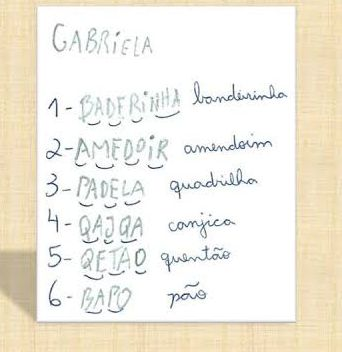 GABRIELA
1- BADERINHA bandeirinha
2- AMEDOIR amendoim
3- PADELA quadrilha
4- QAJQA canjica
5- QETAO quentão
6- BAPO pão